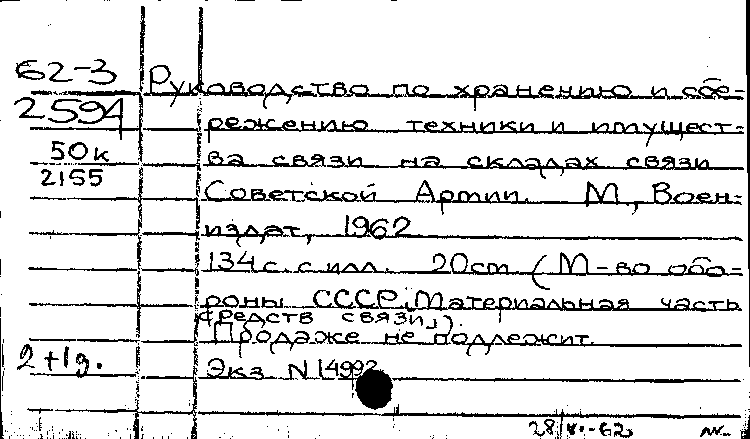 62-3 Руководство по хранению и сбе-
2594 режению техники и имущест-
50к ва связи на складах связи
2155 Советской Армии. М., Воен-
издат, 1962
134 с. с илл. 20см (М-во обо-
роны СССР. Материальная часть
средств связи).
Продаже не подлежит.
2+1д. Экз N 14992